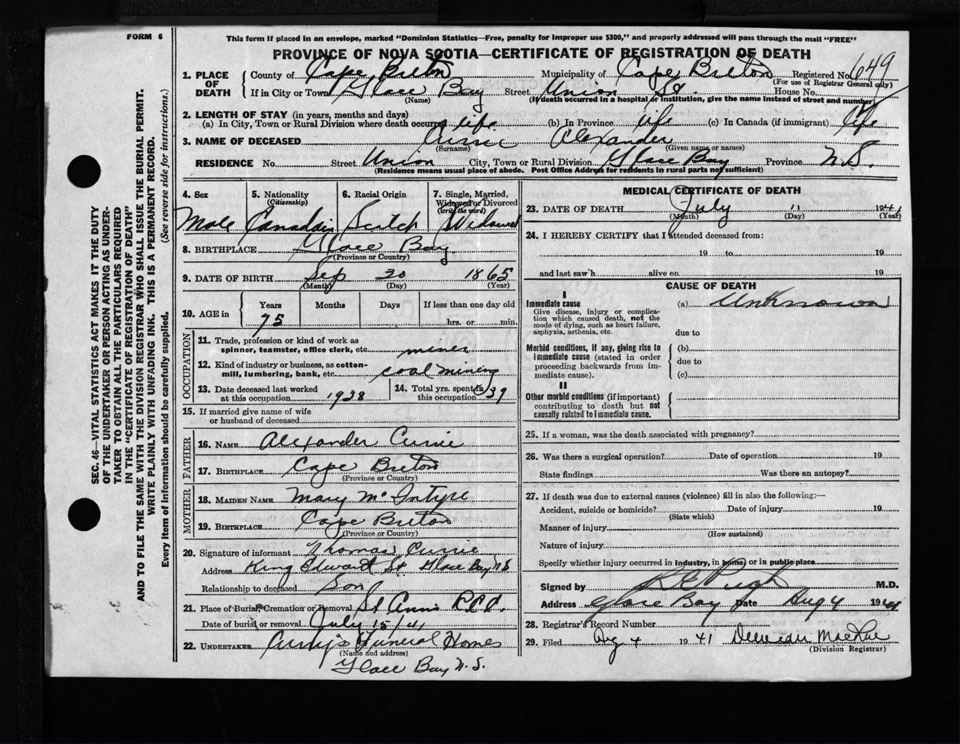 FORM 6
This form if placed in an envelope, marked "Dominion Statistics—Free, penalty for improper use $300," and properly addressed will pass through the mail "FREE"
PROVINCE OF NOVA SCOTIA—CERTIFICATE OF REGISTRATION OF DEATH
SEC. 46—VITAL STATISTICS ACT MAKES IT THE DUTY
OF THE UNDERTAKER OR PERSON ACTING AS UNDER-
TAKER TO OBTAIN ALL THE PARTICULARS REQUIRED
IN THE "CERTIFICATE OF REGISTRATION OF DEATH"
AND TO FILE THE SAME WITH THE DIVISION REGISTRAR WHO SHALL ISSUE THE BURIAL PERMIT.
WRITE PLAINLY WITH UNFADING INK. THIS IS A PERMANENT RECORD.
Every item of information should be carefully supplied. (See reverse side for instructions.)
1. PLACE OF DEATH County of Cape Breton Municipality of Cape Breton Registered No. 649
(For use of Registrar General only)
If in City or Town Glace Bay Street Union St. House No.
(Name) (If death occurred in a hospital or institution, give the name instead of street and number)
2. LENGTH OF STAY (in years, months and days)
(a) In City, Town or Rural Division where death occurred life (b) In Province life (c) In Canada (if immigrant) life
3. NAME OF DECEASED Currie Alexander
(Surname) (Given name or names)
RESIDENCE No. Street Union City, Town or Rural Division Glace Bay Province N.S.
(Residence means usual place of abode. Post Office Address for residents in rural parts not sufficient)
4. Sex Male
5. Nationality (Citizenship) Canadian
6. Racial Origin Scotch
7. Single, Married, Widowed or Divorced (write the word) Widowed
8. BIRTHPLACE Glace Bay
(Province or Country)
9. DATE OF BIRTH Sep 20 1865
(Month) (Day) (Year)
10. AGE in Years Months Days If less than one day old
75 hrs. or min.
OCCUPATION
11. Trade, profession or kind of work as
spinner, teamster, office clerk, etc. miner
12. Kind of industry or business, as cotton-
mill, lumbering, bank, etc. coal mining
13. Date deceased last worked at this occupation 1938
14. Total yrs. spent in this occupation 39
15. If married give name of wife
or husband of deceased
FATHER
16. NAME Alexander Currie
17. BIRTHPLACE Cape Breton
(Province or Country)
MOTHER
18. MAIDEN NAME Mary McIntyre
19. BIRTHPLACE Cape Breton
(Province or Country)
20. Signature of informant Thomas Currie
Address King Edward St Glace Bay N.S
Relationship to deceased Son
21. Place of Burial, Cremation or Removal St Anns R.C.C.
Date of burial or removal July 15/41
22. UNDERTAKER Curry's Funeral Homes
(Name and address)
Glace Bay N.S.
MEDICAL CERTIFICATE OF DEATH
23. DATE OF DEATH July 11 1941
(Month) (Day) (Year)
24. I HEREBY CERTIFY that I attended deceased from:
19 to 19
and last saw h alive on 19
CAUSE OF DEATH
I
Immediate cause (a) Unknown
Give disease, injury or complica-
tion which caused death, not the
mode of dying, such as heart failure,
asphyxia, asthenia, etc. due to
Morbid conditions, if any, giving rise to (b)
immediate cause (stated in order due to
proceeding backwards from im-
mediate cause). (c)
II
Other morbid conditions (if important)
contributing to death but not
causally related to immediate cause.
25. If a woman, was the death associated with pregnancy?
26. Was there a surgical operation? Date of operation 19
State findings Was there an autopsy?
27. If death was due to external causes (violence) fill in also the following:—
Accident, suicide or homicide? Date of injury 19
(State which)
Manner of injury
(How sustained)
Nature of injury
Specify whether injury occurred in industry, in home, or in public place
Signed by M.D.
Address Glace Bay Date Aug 4 1941
28. Registrar's Record Number
29. Filed Aug 4 1941 MacRae
(Division Registrar)